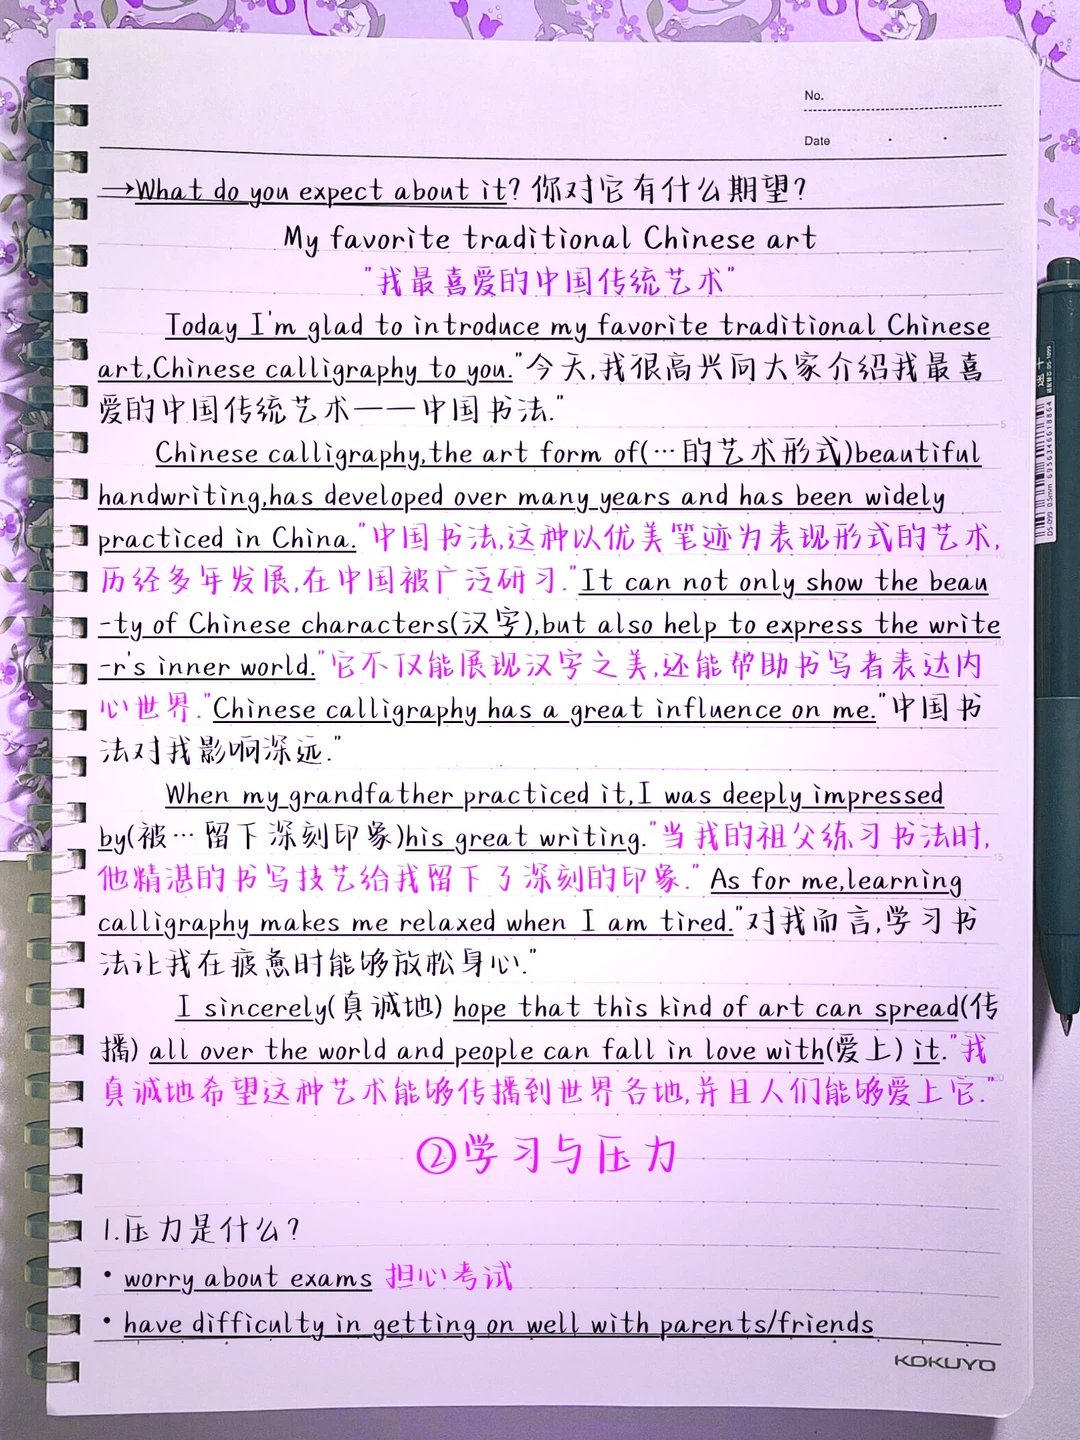 No.
Date
→What do you expect about it? 你对它有什么期望?
My favorite traditional Chinese art
"我最喜爱的中国传统艺术"
Today I'm glad to introduce my favorite traditional Chinese
art,Chinese calligraphy to you."今天,我很高兴向大家介绍我最喜
爱的中国传统艺术——中国书法."
Chinese calligraphy,the art form of(…的艺术形式)beautiful
handwriting,has developed over many years and has been widely
practiced in China."中国书法,这种以优美笔迹为表现形式的艺术,
历经多年发展,在中国被广泛研习."It can not only show the beau
-ty of Chinese characters(汉字),but also help to express the write
-r's inner world."它不仅能展现汉字之美,还能帮助书写者表达内
心世界."Chinese calligraphy has a great influence on me."中国书
法对我影响深远."
When my grandfather practiced it,I was deeply impressed
by(被…留下深刻印象)his great writing."当我的祖父练习书法时,
他精湛的书写技艺给我留下了深刻的印象." As for me,learning
calligraphy makes me relaxed when I am tired."对我而言,学习书
法让我在疲惫时能够放松身心."
I sincerely(真诚地) hope that this kind of art can spread(传
播) all over the world and people can fall in love with(爱上) it."我
真诚地希望这种艺术能够传播到世界各地,并且人们能够爱上它."
②学习与压力
1.压力是什么?
• worry about exams 担心考试
• have difficulty in getting on well with parents/friends
KOKUYO
5
10
15
20
DS-099 0.5mm 6956346618864